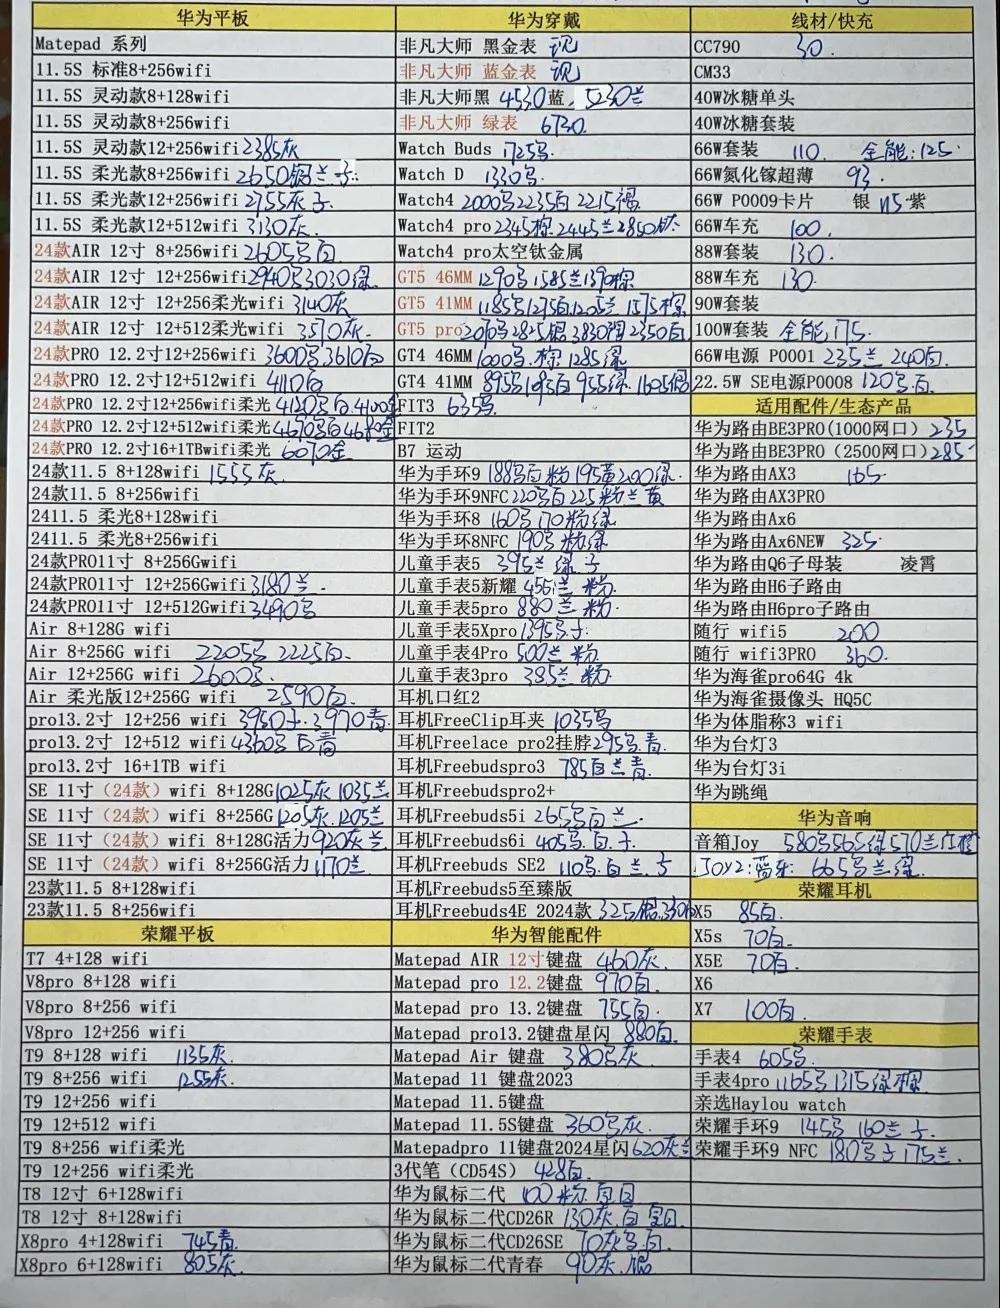 华为平板
Matepad 系列
11.5S 标准8+256wifi
11.5S 灵动款8+128wifi
11.5S 灵动款8+256wifi
11.5S 灵动款12+256wifi 2385灰
11.5S 柔光款8+256wifi 2650 兰 子
11.5S 柔光款12+256wifi 2755灰 子
11.5S 柔光款12+512wifi 3130灰
24款AIR 12寸 8+256wifi 2605号白
24款AIR 12寸 12+256wifi 2940号3030绿
24款AIR 12寸 12+256柔光wifi 3140灰
24款AIR 12寸 12+512柔光wifi 3570灰
24款PRO 12.2寸12+256wifi 3600号3610白
24款PRO 12.2寸12+512wifi 4110白
24款PRO 12.2寸12+256wifi柔光 4120号白.4100金
24款PRO 12.2寸12+512wifi柔光 4670号白 金
24款PRO 12.2寸16+1TBwifi柔光 6070金
24款11.5 8+128wifi 1555灰
24款11.5 8+256wifi
2411.5 柔光8+128wifi
2411.5 柔光8+256wifi
24款PRO11寸 8+256Gwifi
24款PRO11寸 12+256Gwifi 3180兰
24款PRO11寸 12+512Gwifi 3490号
Air 8+128G wifi
Air 8+256G wifi 2205号 2225白
Air 12+256G wifi 2600号
Air 柔光版12+256G wifi 2590白
pro13.2寸 12+256 wifi 3950子.3970青
pro13.2寸 12+512 wifi 4360号白青
pro13.2寸 16+1TB wifi
SE 11寸（24款）wifi 8+128G 1025灰 1035兰
SE 11寸（24款）wifi 8+256G 1205灰.1205兰
SE 11寸（24款）wifi 8+128G活力 920灰兰
SE 11寸（24款）wifi 8+256G活力 1170兰
23款11.5 8+128wifi
23款11.5 8+256wifi
荣耀平板
T7 4+128 wifi
V8pro 8+128 wifi
V8pro 8+256 wifi
V8pro 12+256 wifi
T9 8+128 wifi 1135灰
T9 8+256 wifi 1255灰
T9 12+256 wifi
T9 12+512 wifi
T9 8+256 wifi柔光
T9 12+256 wifi柔光
T8 12寸 6+128wifi
T8 12寸 8+128wifi
X8pro 4+128wifi 745青
X8pro 6+128wifi 805灰
华为穿戴
非凡大师 黑金表 现
非凡大师 蓝金表 现
非凡大师黑 4530蓝 5230兰
非凡大师 绿表 6730
Watch Buds 1725号
Watch D 1330号
Watch4 2000号2235白 2215褐
Watch4 pro 2345棕2445兰2850钛
Watch4 pro太空钛金属
GT5 46MM 1290号1585兰1390棕
GT5 41MM 1185号1275白1205兰 1575棕
GT5 pro 2070号2825银3830陶2350白
GT4 46MM 1000号.棕 1285绿
GT4 41MM 895号1095白955绿 1605银
FIT3 635号
FIT2
B7 运动
华为手环9 188号白粉 195黄200绿
华为手环9NFC 220号白225粉兰黄
华为手环8 160号170粉绿
华为手环8NFC 190号 粉绿
儿童手表5 395兰 绿 子
儿童手表5新耀 455兰 粉
儿童手表5pro 880兰 粉
儿童手表5Xpro 1395号子
儿童手表4Pro 500兰 粉
儿童手表3pro 385兰 粉
耳机口红2
耳机FreeClip耳夹 1035号
耳机Freelace pro2挂脖 295号.青
耳机Freebudspro3 785白兰青
耳机Freebudspro2+
耳机Freebuds5i 265号白兰
耳机Freebuds6i 405号.白.子
耳机Freebuds SE2 110号.白兰.子
耳机Freebuds5至臻版
耳机Freebuds4E 2024款 325银.330白
华为智能配件
Matepad AIR 12寸键盘 460灰
Matepad pro 12.2键盘 970白
Matepad pro 13.2键盘 755白
Matepad pro13.2键盘星闪 880白
Matepad Air 键盘 380号灰
Matepad 11 键盘2023
Matepad 11.5键盘
Matepad 11.5S键盘 360号灰
Matepadpro 11键盘2024星闪 620灰兰
3代笔（CD54S） 428白
华为鼠标二代 100粉
华为鼠标二代CD26R 130灰.白
华为鼠标二代CD26SE 70灰号白
华为鼠标二代青春 90灰.银
线材/快充
CC790 30
CM33
40W冰糖单头
40W冰糖套装
66W套装 110 全能:125
66W氮化镓超薄 93
66W P0009卡片 银 115 紫
66W车充 100
88W套装 130
88W车充 130
90W套装
100W套装 全能175
66W电源 P0001 235兰 240白
22.5W SE电源P0008 120号.白
适用配件/生态产品
华为路由BE3PRO(1000网口) 235
华为路由BE3PRO (2500网口) 285
华为路由AX3 165
华为路由AX3PRO
华为路由Ax6
华为路由Ax6NEW 325
华为路由Q6子母装 凌霄
华为路由H6子路由
华为路由H6pro子路由
随行 wifi5 200
随行 wifi3PRO 360
华为海雀pro64G 4k
华为海雀摄像头 HQ5C
华为体脂称3 wifi
华为台灯3
华为台灯3i
华为跳绳
华为音响
音箱Joy 580号565绿570兰白橙
JOY2:蓝牙: 665号兰绿
荣耀耳机
X5 85白
X5s 70白
X5E 70白
X6
X7 100白
荣耀手表
手表4 605号
手表4pro 1165号1315绿棕
亲选Haylou watch
荣耀手环9 145号 160兰 子
荣耀手环9 NFC 180号子175兰